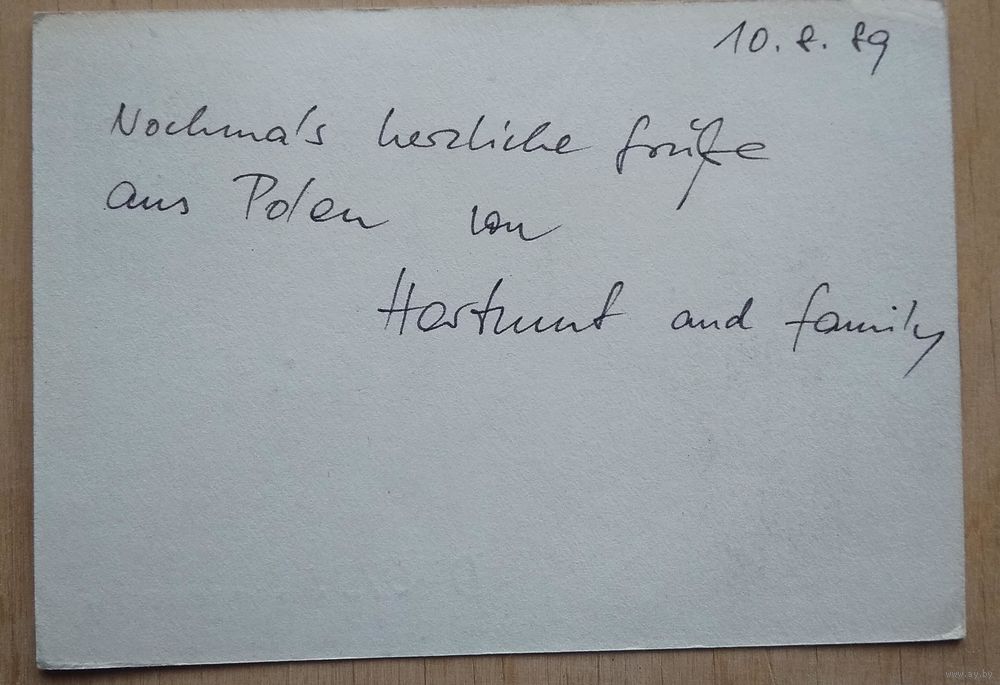 10. 8. 89
Nochma's herzliche Grüße
aus Polen von
Hartmut and family
www.ay.by